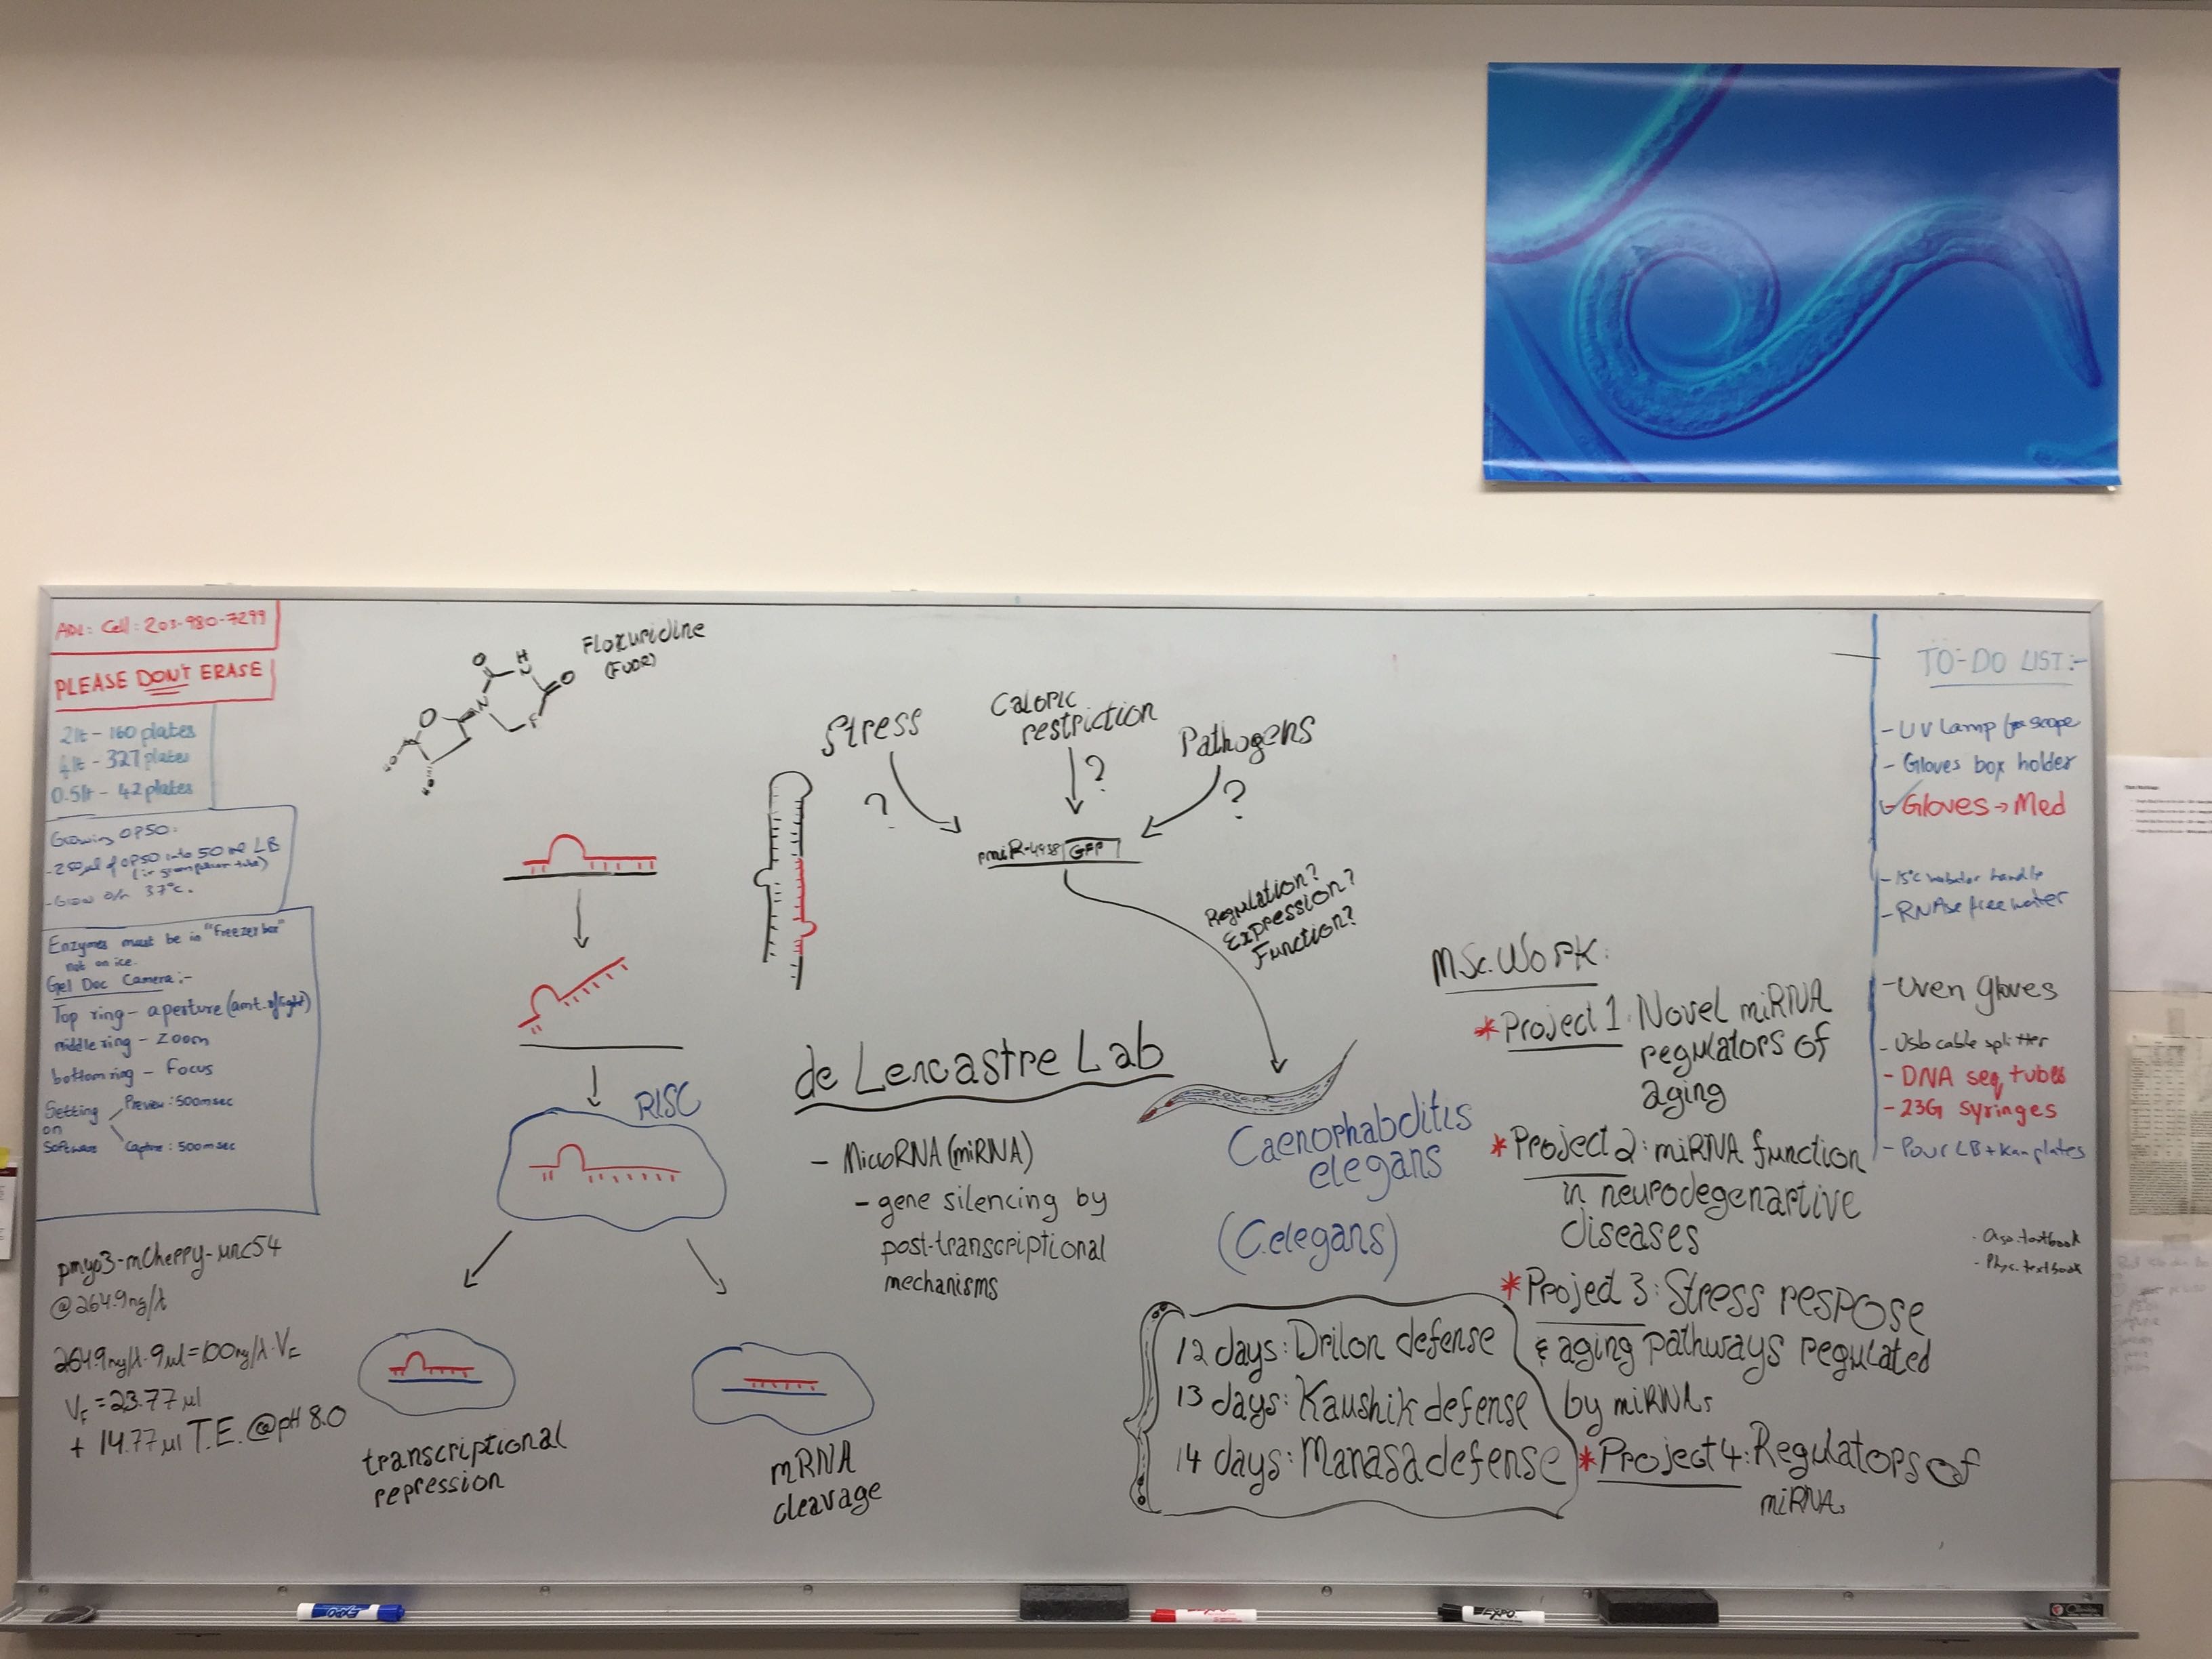 ADL: Cell: 203-980-7299
PLEASE DON'T ERASE
2lt - 160 plates
4lt - 327 plates
0.5lt - 42 plates
Growing OP50:
- 250µl of OP50 into 50 ml LB
- Grow o/n 37°C.
Enzymes must be in "Freezer box"
not on ice.
Gel Doc Camera:-
Top ring - aperture (amt. of light)
middle ring - Zoom
bottom ring - Focus
Setting
on
Software
Preview: 500msec
Capture: 500msec
pmyo3-mCherry-unc54
@264.9ng/λ
264.9ng/λ·9µl=100ng/λ·VF
VF = 23.77 µl
+ 14.77µl T.E. @pH 8.0
Floxuridine
(FUDR)
O
H
N
O
N
F
O
RISC
transcriptional
repression
mRNA
cleavage
Stress
?
Caloric
restriction
?
Pathogens
?
pmiR-4938 GFP
Regulation?
Expression?
Function?
de Lencastre Lab
- MicroRNA (miRNA)
- gene silencing by
post-transcriptional
mechanisms
Caenorhabditis
elegans
(C.elegans)
12 days: Drilon defense
13 days: Kaushik defense
14 days: Manasa defense
M.Sc. Work:
*Project 1: Novel miRNA
regulators of
aging
*Project 2: miRNA function
in neurodegenartive
diseases
*Project 3: Stress respose
& aging pathways regulated
by miRNAs
*Project 4: Regulators of
miRNAs
TO-DO LIST:-
- UV Lamp for scope
- Gloves box holder
- Gloves → Med
- 15°C handle
- RNAse free water
- Oven gloves
- Usb cable splitter
- DNA seq tubes
- 23G syringes
- Pour LB + Kan plates
- textbook
- Phys. textbook
EXPO
EXPO